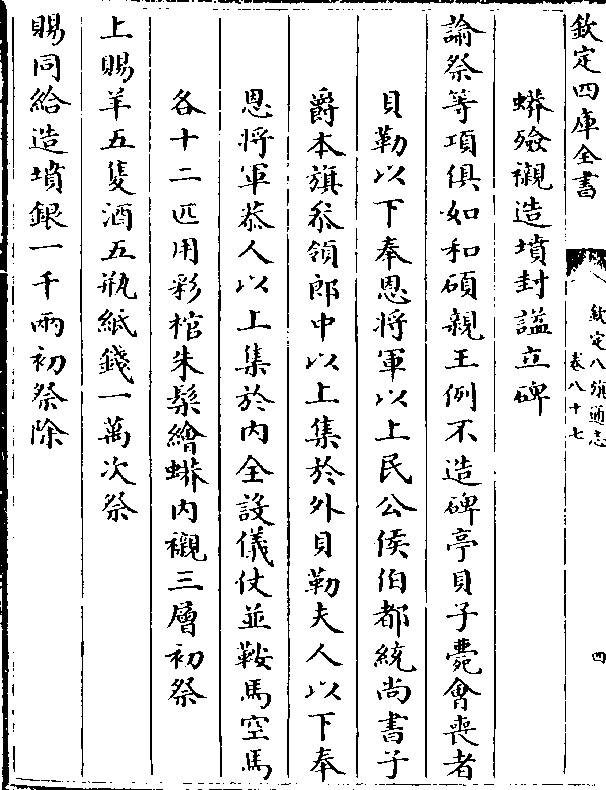 欽定四庫全書
欽定八旗通志
卷八十七
四
蟒殮襯造墳封諡立碑
諭祭等項俱如和碩親王例不造碑亭貝子薨會喪者
貝勒以下奉恩將軍以上民公侯伯都統尚書子
爵本旗叅領郎中以上集於外貝勒夫人以下奉
恩將軍恭人以上集於内全設儀仗並鞍馬空馬
各十二匹用彩棺朱髹繪蟒内襯三層初祭
上賜羊五隻酒五瓶紙錢一萬次祭
賜同給造墳銀一千兩初祭除